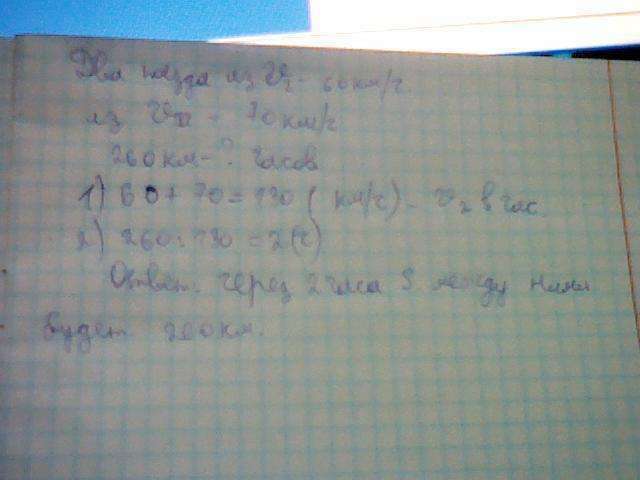 Два
60 км/ч.
70 км/ч
260 км - ? часов
1) 60 + 70 = 130 ( км/ч) - v₂ в час.
2) 260 : 130 = 2 (ч)
Ответ. через 2 часа S между ними
будет 260 км.